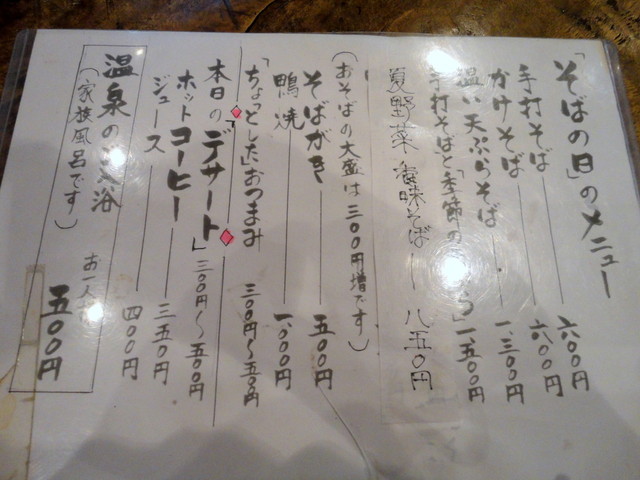 「そばの日」のメニュー
手打そば 六〇〇円
かけそば 六〇〇円
温い天ぷらそば 一、三〇〇円
手打そばと「季節の ら」一、五〇〇円
夏野菜 薬味そば 八五〇円
(おそばの大盛は三〇〇円増です)
そばがき 五〇〇円
鴨焼 一、〇〇〇円
「ちょっとした」おつまみ 三〇〇円〜五〇〇円
本日の「デザート」三〇〇円〜五〇〇円
ホットコーヒー 三五〇円
ジュース 四〇〇円
温泉の 浴 お一人 五〇〇円
(家族風呂です)